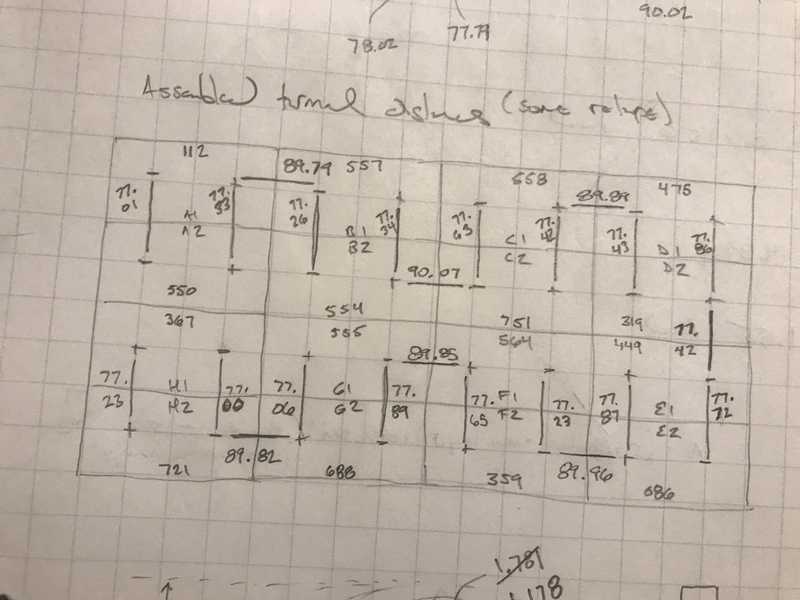 90.02
78.02 77.79
Assembled terminal distances (some relupe)
112 89.79 557 558 89.89 475
77.01 77.33 77.26 77.34 77.63 77.42 77.43 77.86
A1 B1 C1 D1
A2 B2 C2 D2
90.07
550 554 751 319
367 555 564 449 77.42
89.85
77.23 H1 77.00 77.06 G1 77.89 77.65 F1 77.23 77.87 E1 77.72
H2 G2 F2 E2
89.82 89.96
721 688 359 686
1.781
1.178